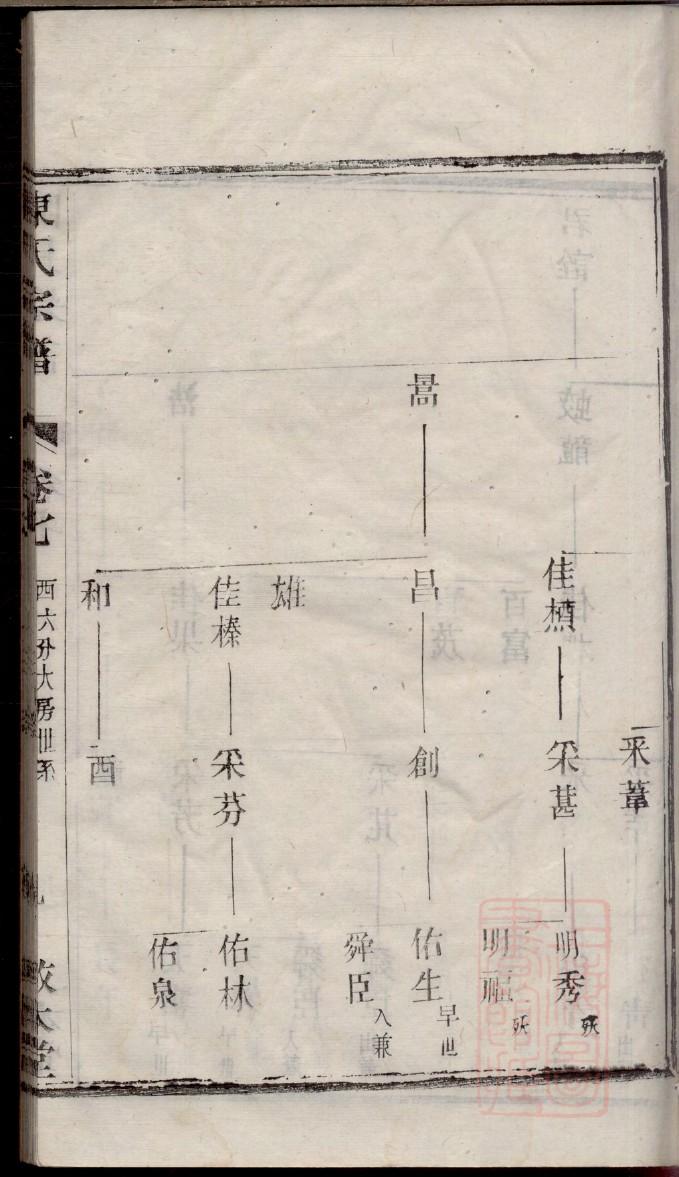 采葦
佳槓
采葚
明秀
殀
明福
殀
暠
昌
創
佑生
早世
舜臣
入兼
雄
佳榛
采芬
佑林
佑泉
和
酉
陳氏宗譜
卷七
西六分大房世系
九
敦本堂